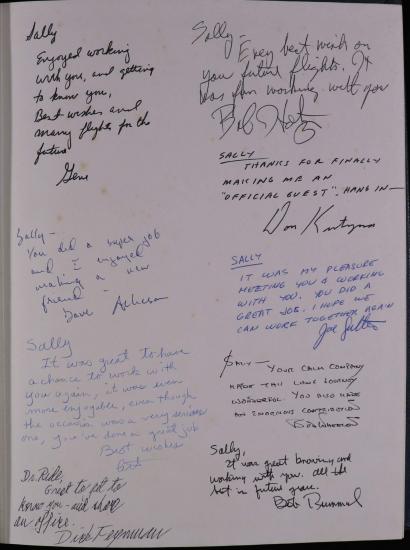 Sally
Enjoyed working
with you, and getting
to know you,
Best wishes and
many flights for the
future
Gene
Sally -
You did a super job
and I enjoyed
making a new
friend -
Dave Acheson
Sally
It was great to have
a chance to work with
you again, it was even
more enjoyable, even though
the occasion was a very serious
one, you've done a great job
Best wishes
Dr. Ride,
Great to get to
know you - and share
an office.
Dick Feynman
Sally -
Every best wish on
your future flights. It
was fun working with you
Bob Hotz
SALLY
THANKS FOR FINALLY
MAKING ME AN
"OFFICIAL GUEST". HANG IN -
Don Kutyna
SALLY
IT WAS MY PLEASURE
MEETING YOU & WORKING
WITH YOU. YOU DID A
GREAT JOB. I HOPE WE
CAN WORK TOGETHER AGAIN
Joe Sutter
SALLY - YOUR CALM COMPANY
MADE THIS LONG JOURNEY
WONDERFUL. YOU ALSO MADE
AN ENORMOUS CONTRIBUTION
Sally,
It was great knowing and
working with you. All the
best in future years.
Bob Rummel